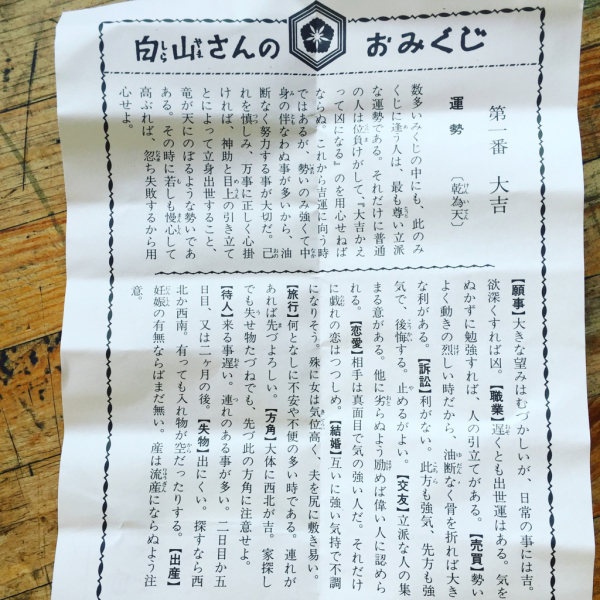 白山さんの おみくじ
第一番 大吉
運勢 〔乾為天〕
数多いみくじの中にも、此のみ
くじに逢う人は、最も尊い立派
な運勢である。それだけに普通
の人は位負けがして、『大吉かえ
って凶になる』のを用心せねば
ならぬ。これから吉運に向う時
ではあるが、勢いのみ強くて中
身の伴なわぬ事が多いから、油
断なく努力する事が大切だ。己
れを慎しみ、万事に正しく心掛
ければ、神助と目上の引き立て
とによって立身出世すること、
竜が天にのぼるような勢いであ
る。その時に若しも慢心して
高ぶれば、忽ち失敗するから用
心せよ。
【願事】大きな望みはむづかしいが、日常の事には吉。
欲深くすれば凶。【職業】遅くとも出世運はある。気を
ぬかずに勉強すれば、人の引立てがある。【売買】勢い
よく動きの烈しい時だから、油断なく骨を折れば大き
な利がある。【訴訟】利がない。此方も強気、先方も強
気で、後悔する。止めるがよい。【交友】立派な人の集
まる意がある。他に劣らぬよう励めば偉い人に認めら
れる。【恋愛】相手は真面目で気の強い人だ。それだけ
に戯れの恋はつつしめ。【結婚】互いに強い気持で不調
になりそう。殊に女は気位高く、夫を尻に敷き易い。
【旅行】何となしに不安や不便の多い時である。連れが
あれば先づよろしい。【方角】大体に西北が吉。家探し
でも失せ物たづねでも、先づ此の方角に注意せよ。
【待人】来る事遅い。連れのある事が多い。二日目か五
日目、又は二ヶ月の後。【失物】出にくい。探すなら西
北か西南。有っても入れ物が空だったりする。【出産】
妊娠の有無ならばまだ無い。産は流産にならぬよう注
意。